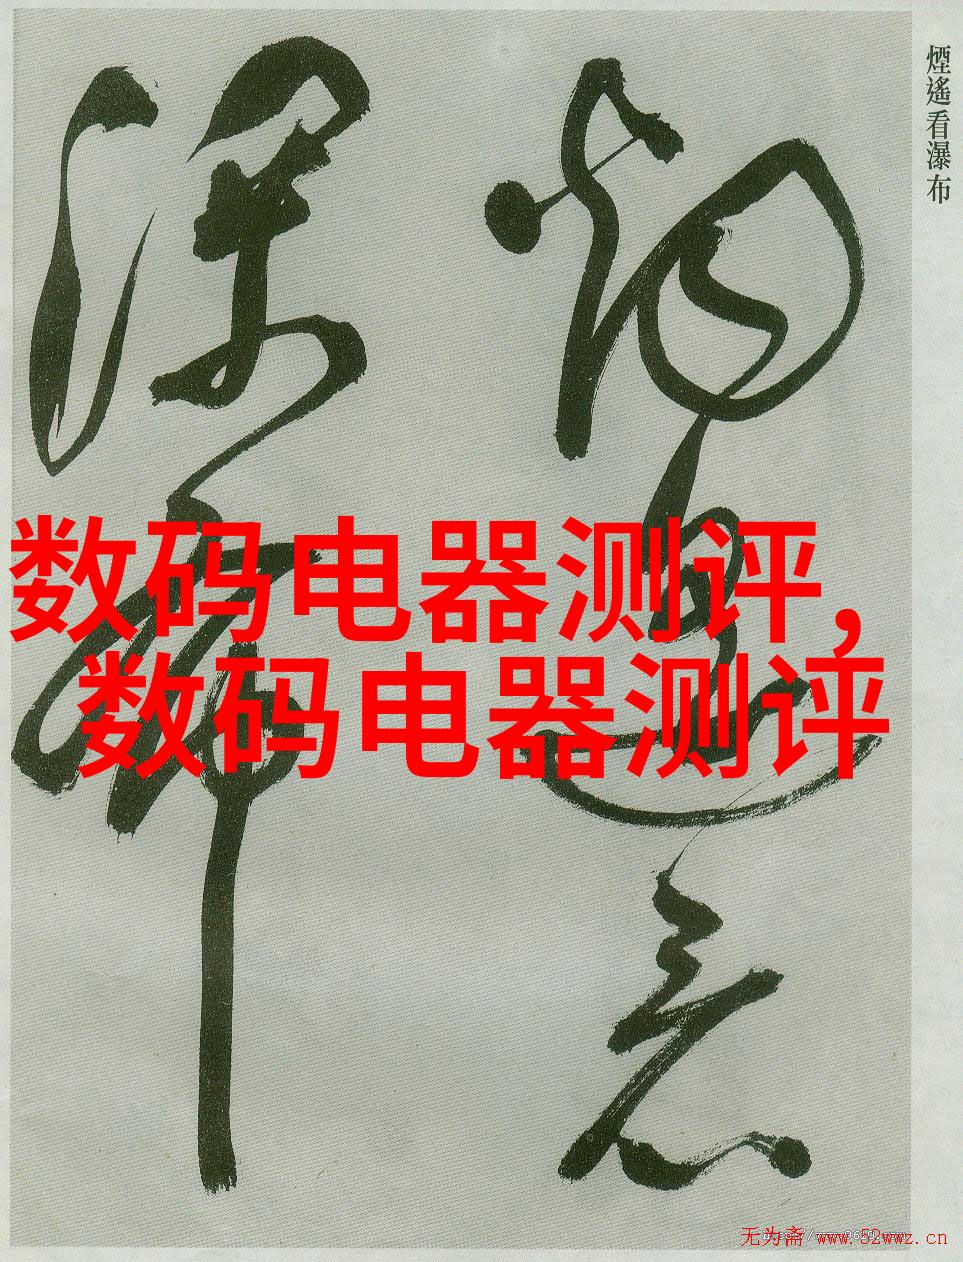 煙遙看瀑布
数码电器测评,
数码电器测评
无为斋 www.52wwz.cn